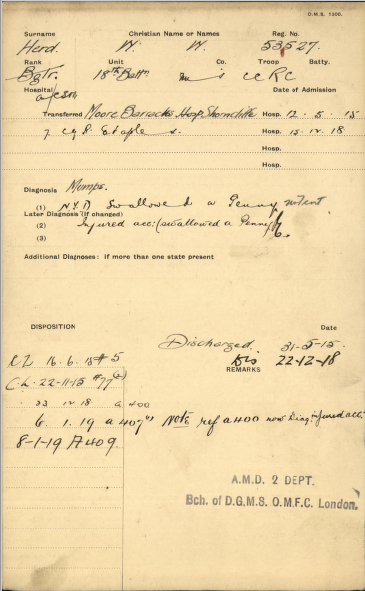 D.M.S. 1300.
Surname Christian Name or Names Reg. No.
Herd. W. W. 53527.
Rank Unit Co. Troop Batty.
Bgtr. 18th Battn. C C R C
Hospital Date of Admission
Transferred Moore Barracks Hosp Shorncliffe Hosp. 12 . 5 . 15
7 Cgd Etaples. Hosp. 15 . 12 . 18
Hosp.
Hosp.
Diagnosis Mumps.
(1) N.Y.D Swallowed a Penny
Later Diagnosis (if changed)
(2) Injured acc: (swallowed a Penny)
(3)
Additional Diagnoses: If more than one state present
DISPOSITION Date
Discharged. 31-5-15.
Dis 22-12-18
REMARKS
C L 16.6.15 # 5
C.L. 22-11-15 # 77 (2)
23 12 18 a 400
6. 1. 19 a 407 Note ref a 400 now Diag. injured acc:
8-1-19 A409.
A.M.D. 2 DEPT.
Bch. of D.G.M.S. O.M.F.C. London.